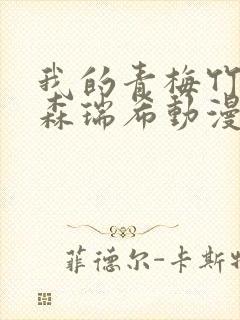 我的青梅竹
森瑞希動漫
菲德尔-卡斯特